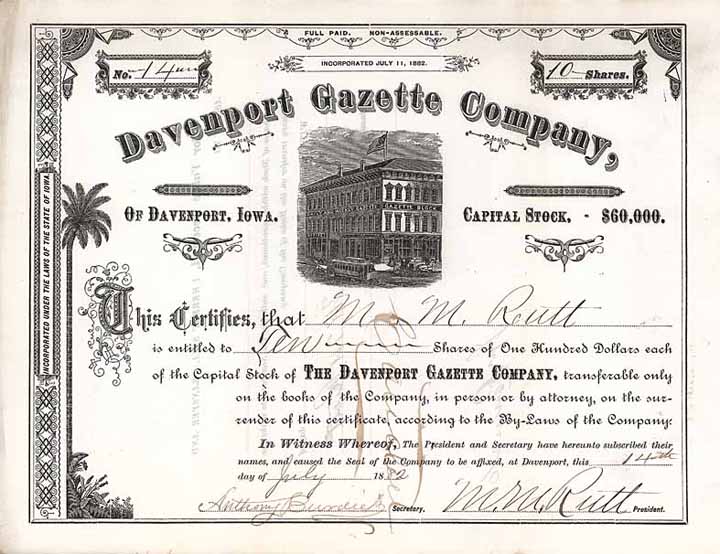 FULL PAID. NON-ASSESSABLE.
INCORPORATED JULY 11, 1882.
No. 14
10 Shares.
Davenport Gazette Company,
OF DAVENPORT, IOWA.
CAPITAL STOCK, - $60,000.
GAZETTE BLOCK
INCORPORATED UNDER THE LAWS OF THE STATE OF IOWA.
This Certifies, that M. M. Rutt
is entitled to Ten Shares of One Hundred Dollars each
of the Capital Stock of THE DAVENPORT GAZETTE COMPANY, transferable only
on the books of the Company, in person or by attorney, on the sur-
render of this certificate, according to the By-Laws of the Company.
In Witness Whereof, The President and Secretary have hereunto subscribed their
names, and caused the Seal of the Company to be affixed, at Davenport, this 14th
day of July 1882
Anthony Burdick Secretary. M. M. Rutt President.